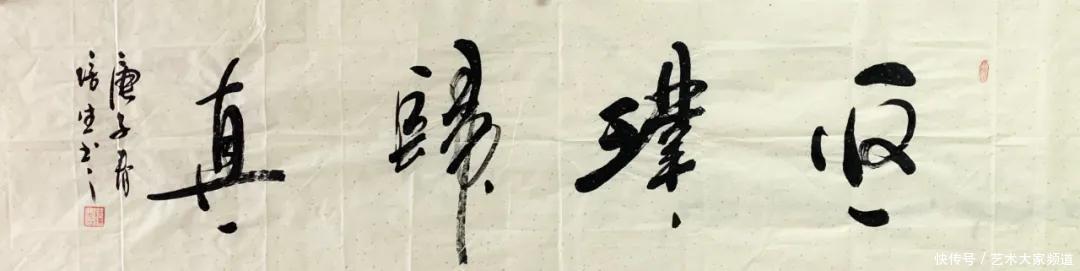 返璞歸真
庚子春
培生书
快传号 / 艺术大家频道